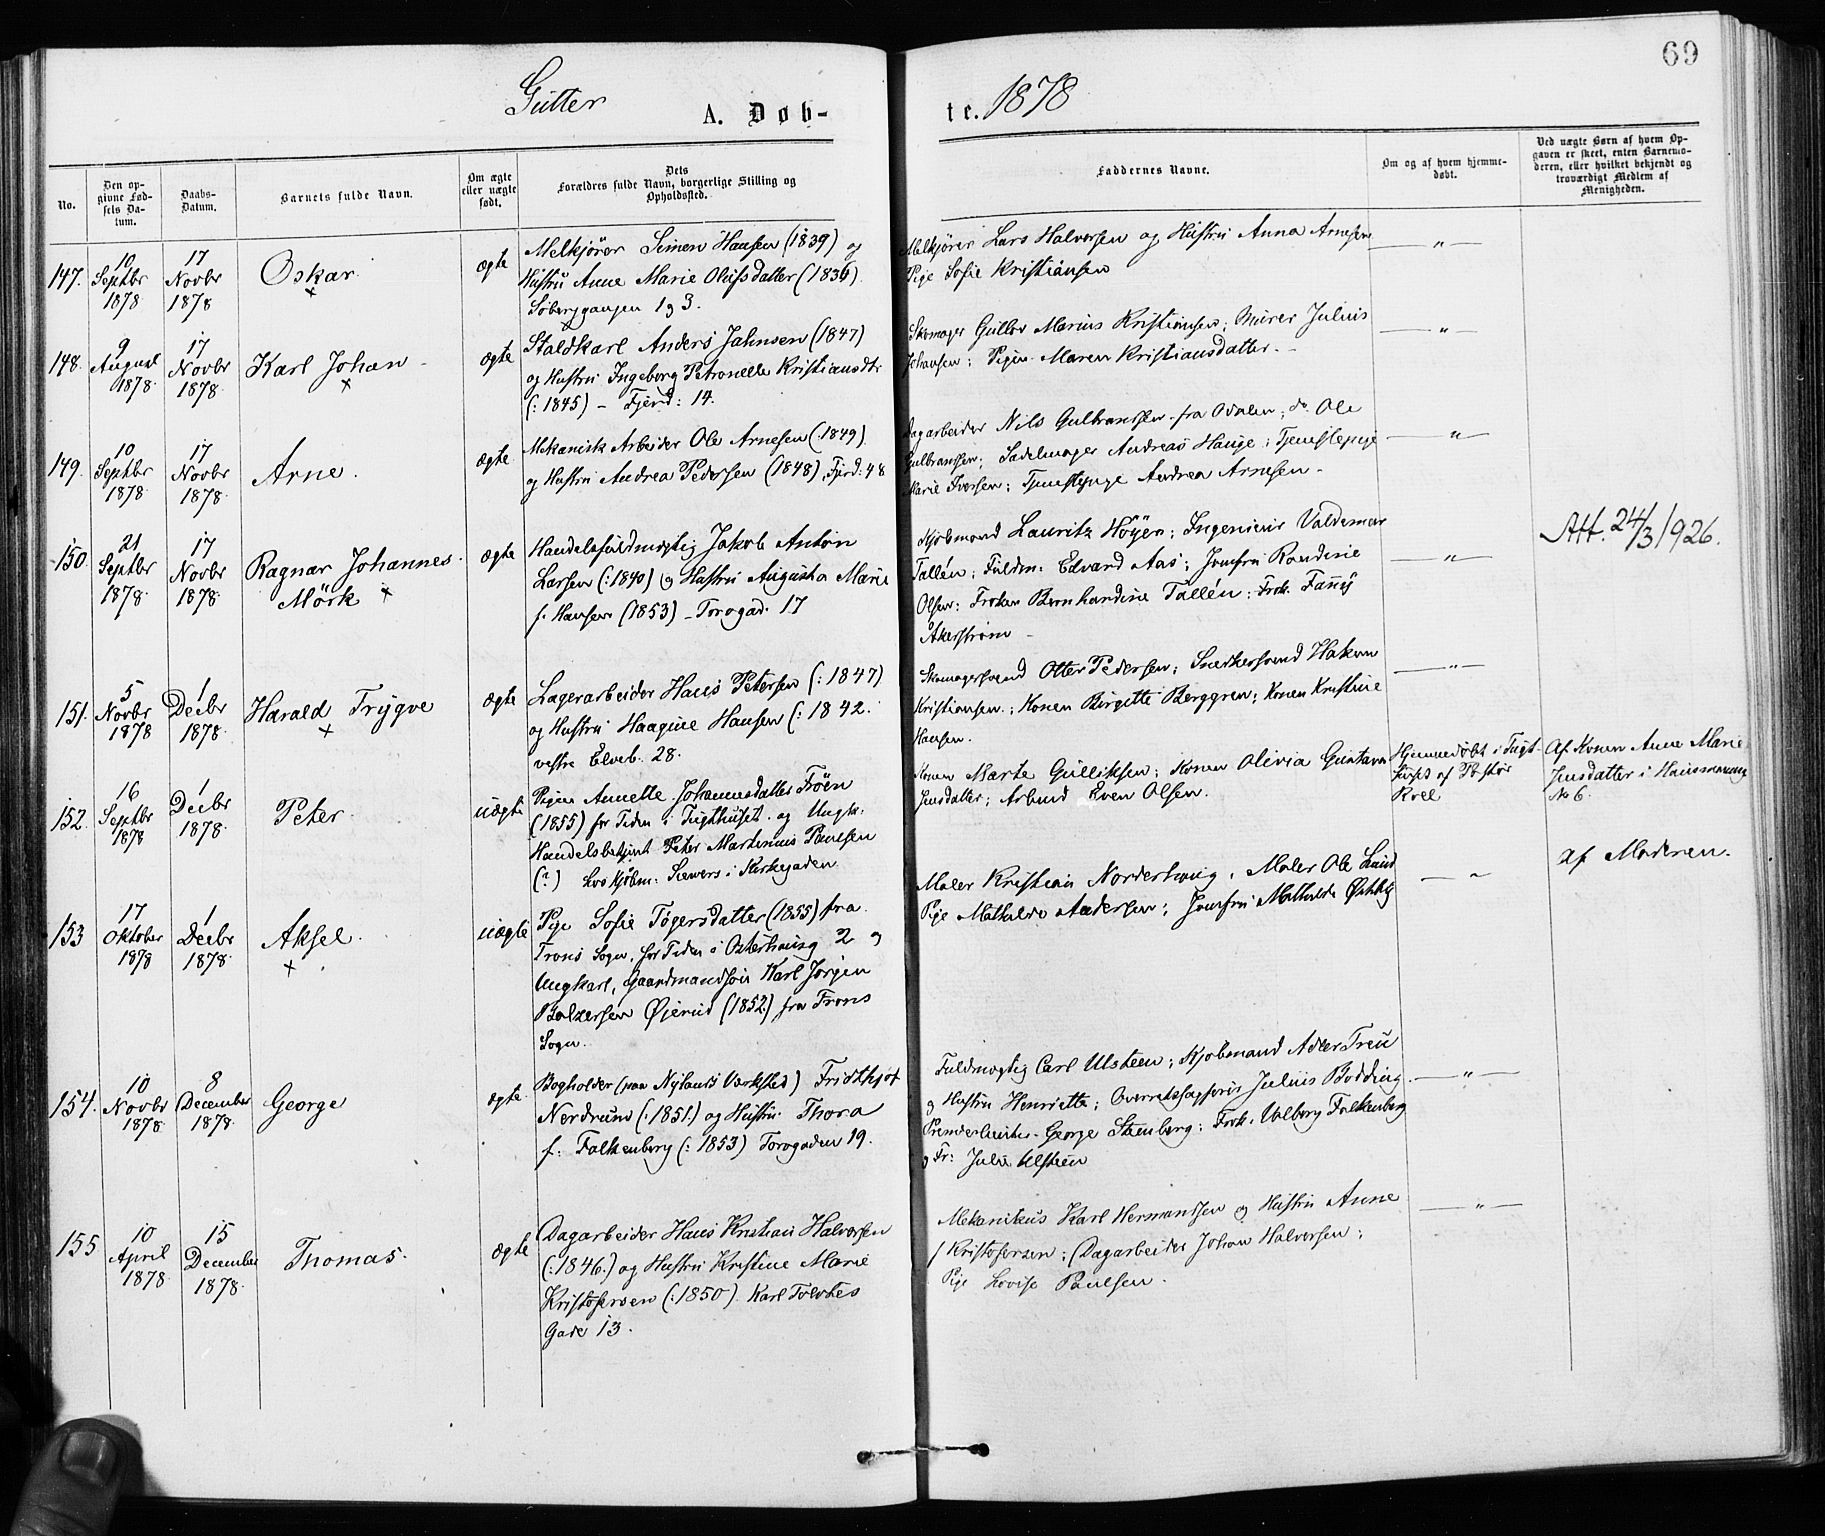 69
Gutter
A. Døb-
te. 1878
No.
Den op-
givne Fød-
sels Da-
tum.
Daabs-
Datum.
Barnets fulde Navn.
Om ægte
eller uægte
født.
Dets
Forældres fulde Navn, borgerlige Stilling og
Opholdssted.
Faddernes Navne.
Om og af hvem hjemme-
døbt.
Ved uægte Børn af hvem Op-
gaven er skeet, enten Barnemo-
deren, eller hvilket bekjendt og
troværdigt Medlem af
Menigheden.
147.
10
Septbr
1878
17
Novbr
1878
Oskar
×
ægte
Melkjörer Simen Hansen (1839) og
Hustru Anne Marie Olufsdatter (1836)
1 og 3.
Melkjörer Lars Halvorsen og Hustru Anna Arnesen
Pige Sofie Kristiansen
— " —
148.
9
August
1878.
17
Novbr
1878.
Karl Johan
×
ægte
Staldkarl Anders Jahnsen (1847)
og Hustru Ingeborg Petronelle Kristiansdtr
(: 1845) – Fjerd: 14.
Skomager Gullov Marius Kristiansen; Murer Julius
Johansen; Pigen Maren Kristiansdatter. –
— " —
149.
10
Septbr
1878
17
Novbr
1878.
Arne.
ægte
Mekanisk Arbeider Ole Arnesen (: 1849)
og Hustru Andrea Pedersen (1848), Fjrd: 48
Dagarbeider Nils Gulbranssen fra Odalen; do Ole
Gulbranssen; Sadelmager Andreas Hauge; Tjenestepige
Marie Iversen; Tjenestepige Andrea Arnesen –
— " —
150.
21
Septbr
1878.
17
Novbr
1878.
Ragnar Johannes
Mörk ×
ægte
Handelsfuldmægtig Jakob Anton
Larsen (: 1840) og Hustru Augusta Marie
f. Hansen (1853) – Torvgad. 17
Kjøbmand Lauritz Höyer; Ingenieur Valdemar
Tallén; Fuldm: Edvard Aas; Jomfru Randine
Olsen: Frøken Bernhardine Tallén: Frøk. Fanny
Åkerström –
— " —
Att. 24/3 1926.
151.
5
Novbr
1878
1
Decbr
1878.
Harald Trygve
×
ægte
Lagerarbeider Hans Petersen (: 1847)
og Hustru Haagine Hansen (: 1842.
vestre Elveb. 28.
Skomagersvend Otter Pedersen; Snedkersvend Hakon
Kristiansen; Konen Birgitte Berggren; Konen Kristine
Hansen.
— " —
152.
16
Septbr
1878
1
Decbr
1878.
Peter.
uægte
Pigen Annette Johannesdatter Fröen
(1855) for Tiden i Tugthuset og Ungk:
Handelsbetjent Peter Martinius Paulsen
(?) hos Kjøbm: Siewers i Kirkegaden.
Konen Marte Gulliksen; Konen Olivia Gustava
Jensdatter; Arbmd Even Olsen.
Hjemmedöbt i Tugt-
huset af Pastor
Roll
Af Konen Anne Marie
Jensdatter i Hausmannsg
No 6.
153
17
Oktober
1878
1
Decbr
1878.
Aksel
×
uægte
Pige Sofie Tögersdatter (1855) fra
Frons Sogn, for Tiden i Osterhausg 2 og
Ungkarl, Gaardmandssön Karl Jorgen
Balzersen Øierud (1852) fra Frons
Sogn.
Maler Kristian Norderhaug, Maler Ole Lund
Pige Mathilde Andersen; Jomfru Mathilde
— " —
af Moderen.
154.
10
Novbr
1878
8
December
1878.
George
ægte
Bogholder (paa Nylands Værksted) Fridthjof
Nerdrum (: 1851) og Hustru Thora
f: Falkenberg (: 1853) Torvgaden 19.
Fuldmægtig Carl Ulsteen; Kjøbmand Adler Treu
og Hustru Henriette; Overretssagförer Julius Bödding
Premierløitn. George Steenberg: Frøk. Valborg Falkenberg
og Fr: Julie Ulsteen
— " —
155
10
April
1878
15
December
1878.
Thomas.
ægte
Dagarbeider Hans Kristian Halvorsen
(: 1846.) og Hustru Kristine Marie
Kristofersen (: 1850) Karl Tolvtes
Gade 13.
Mekanikus Karl Hermansen og Hustru Anne
f Kristofersen; Dagarbeider Johan Halvorsen;
Pige Lovise Paulsen.
— " —